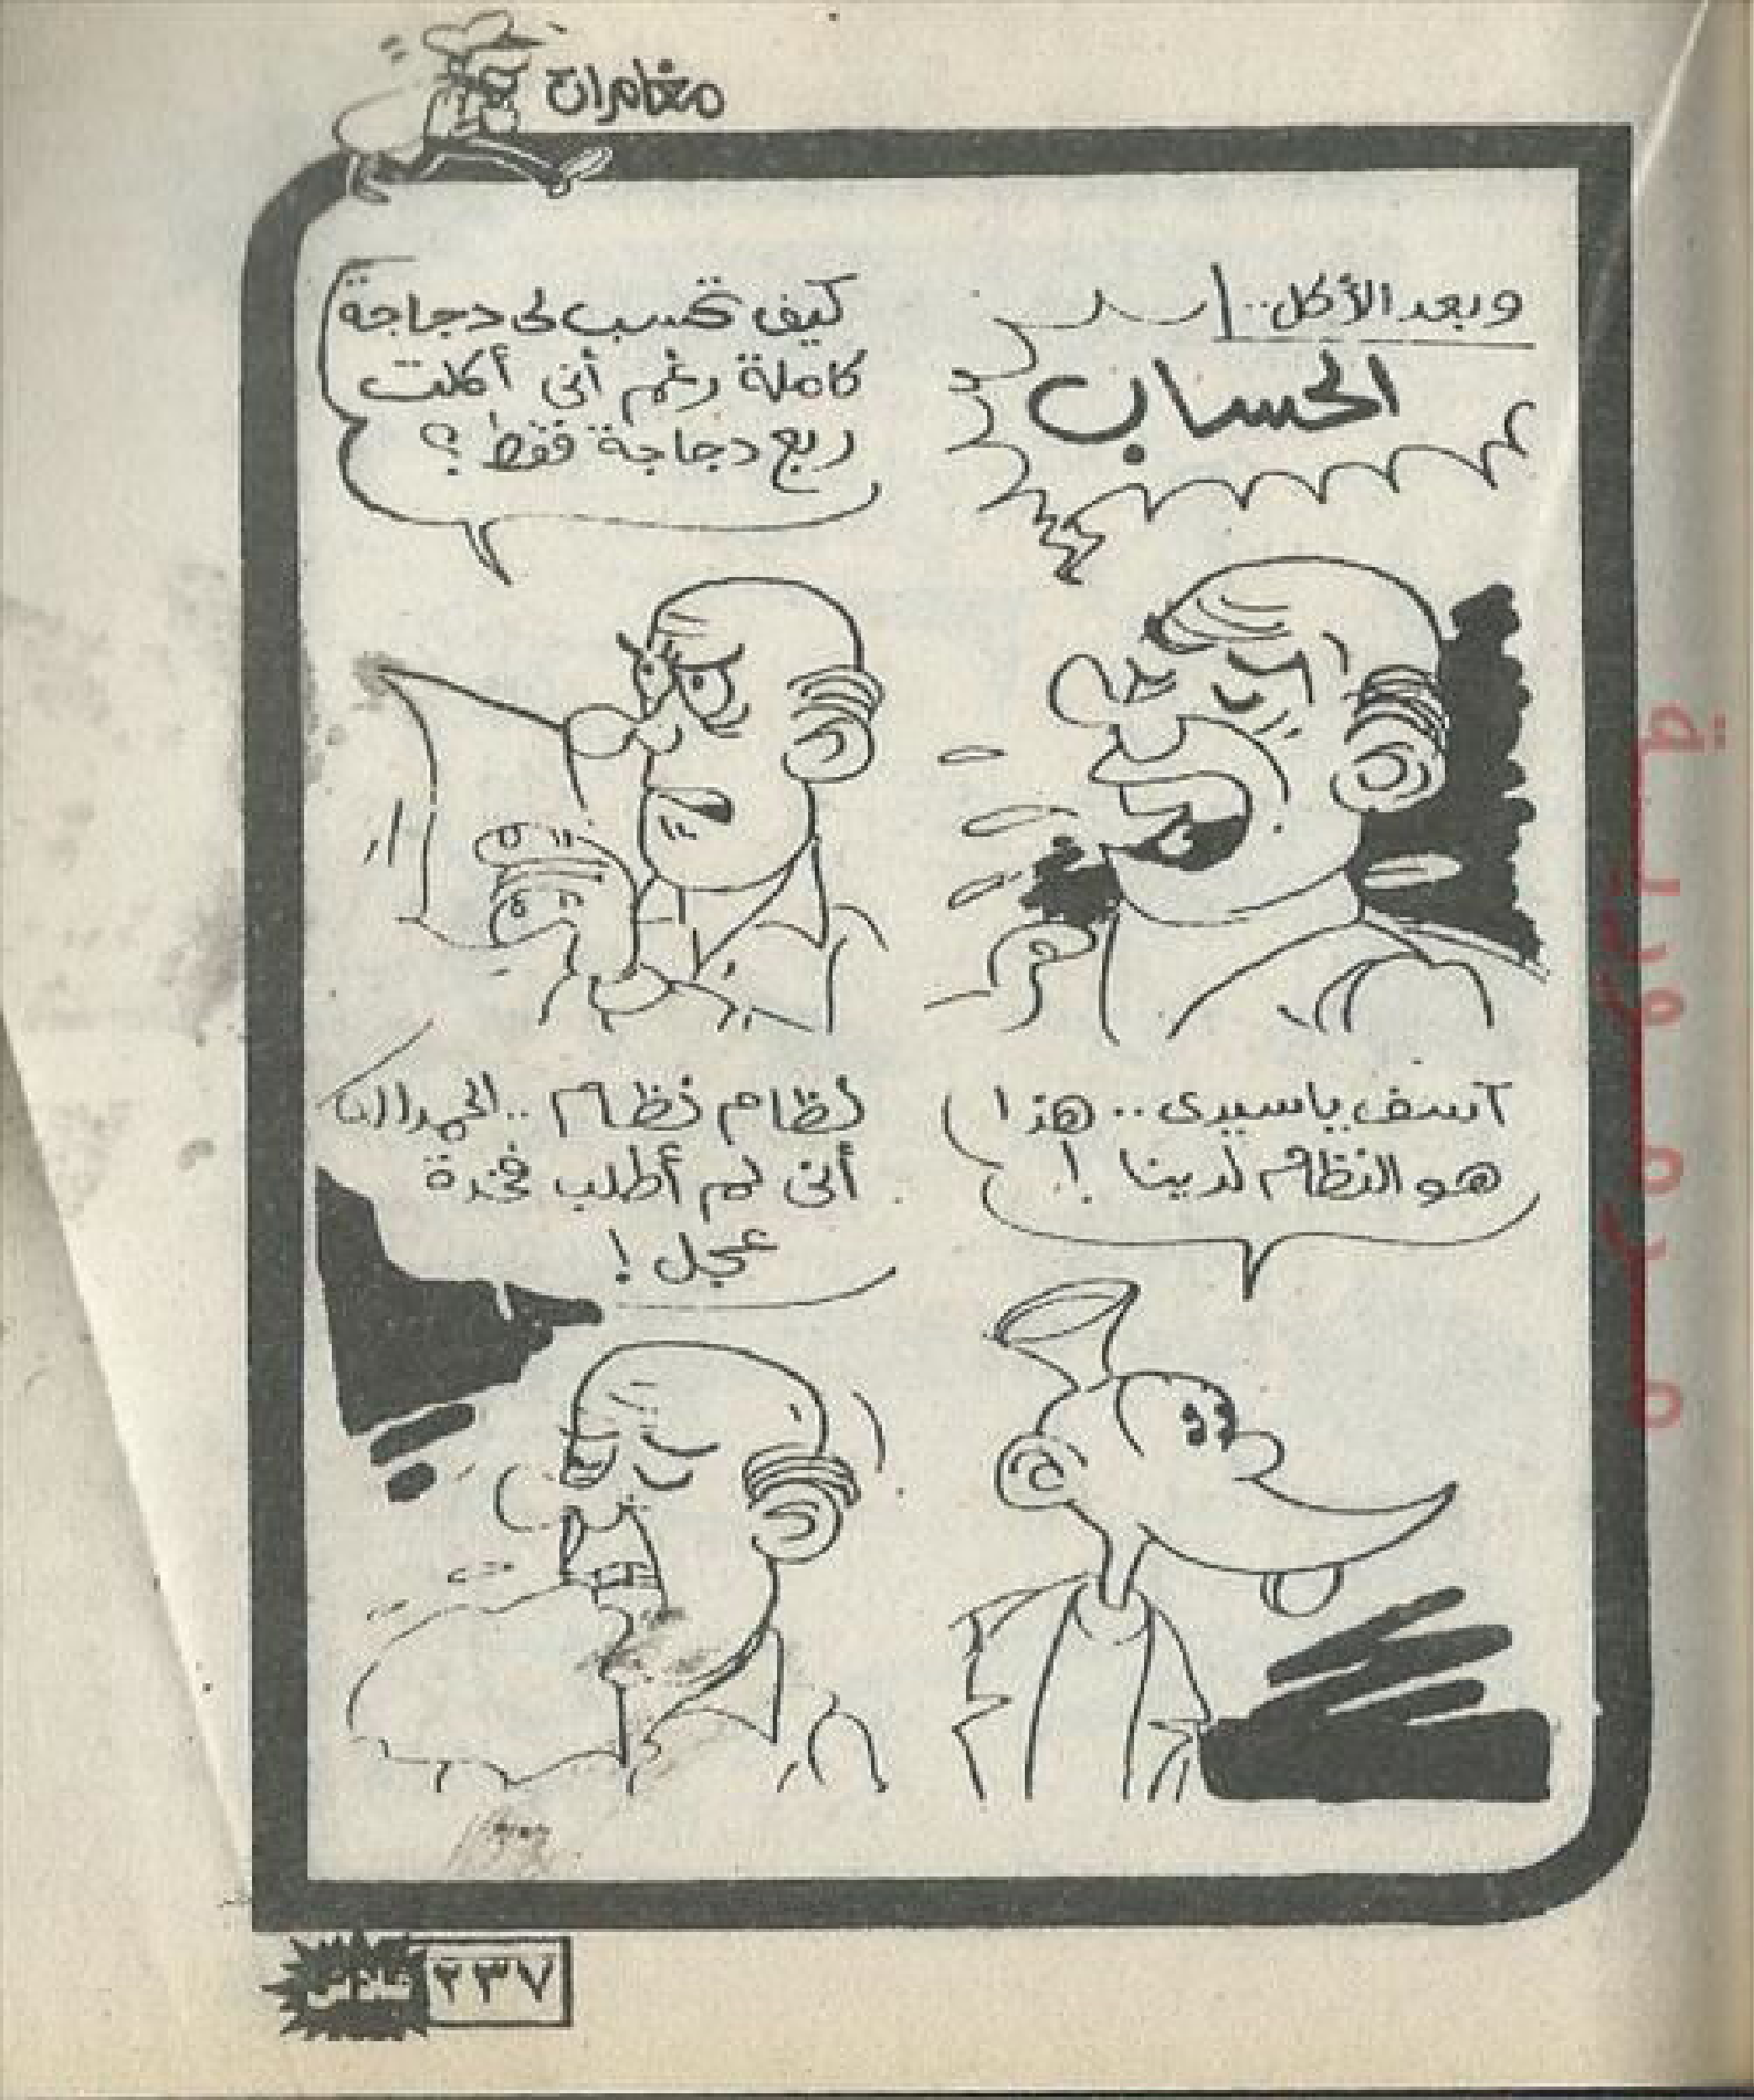 مغامرات
وبعد الأكل..
الحساب
كيف تحسب لى دجاجة
كاملة رغم أنى أكلت
ربع دجاجة فقط؟
آسف ياسيدى.. هذا
هو النظام لدينا !
نظام نظام .. الحمدالله
أنى لم أطلب فخدة
عجل !
٢٣٧